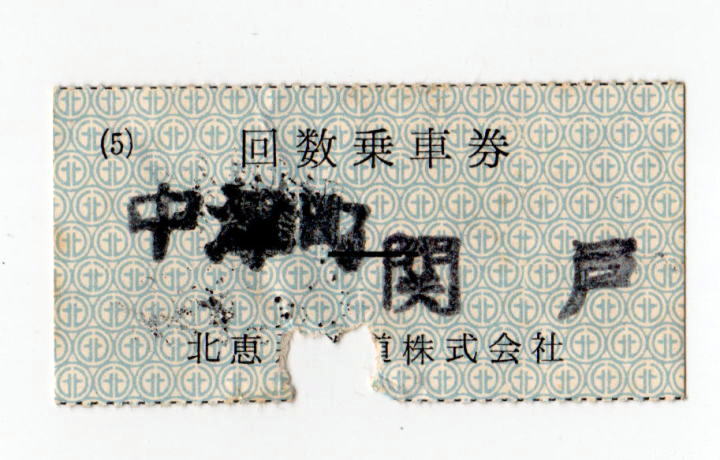 (5) 回数乗車券
中津町
関戸
北恵 道株式会社